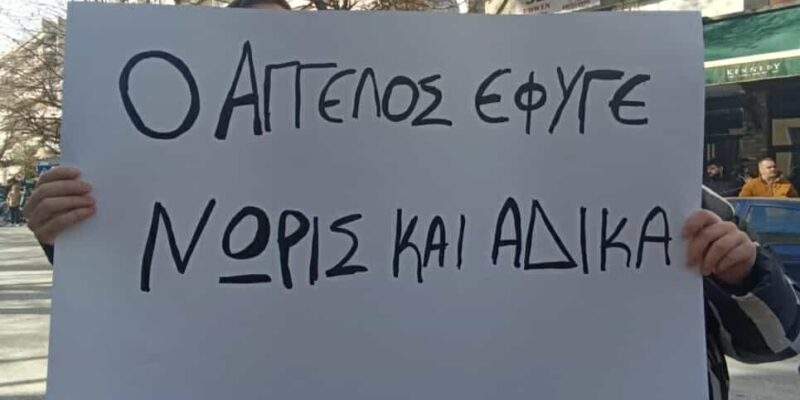 Ο ΑΓΓΕΛΟΣ ΕΦΥΓΕ
ΝΩΡΙΣ ΚΑΙ ΑΔΙΚΑ
KENNEDY